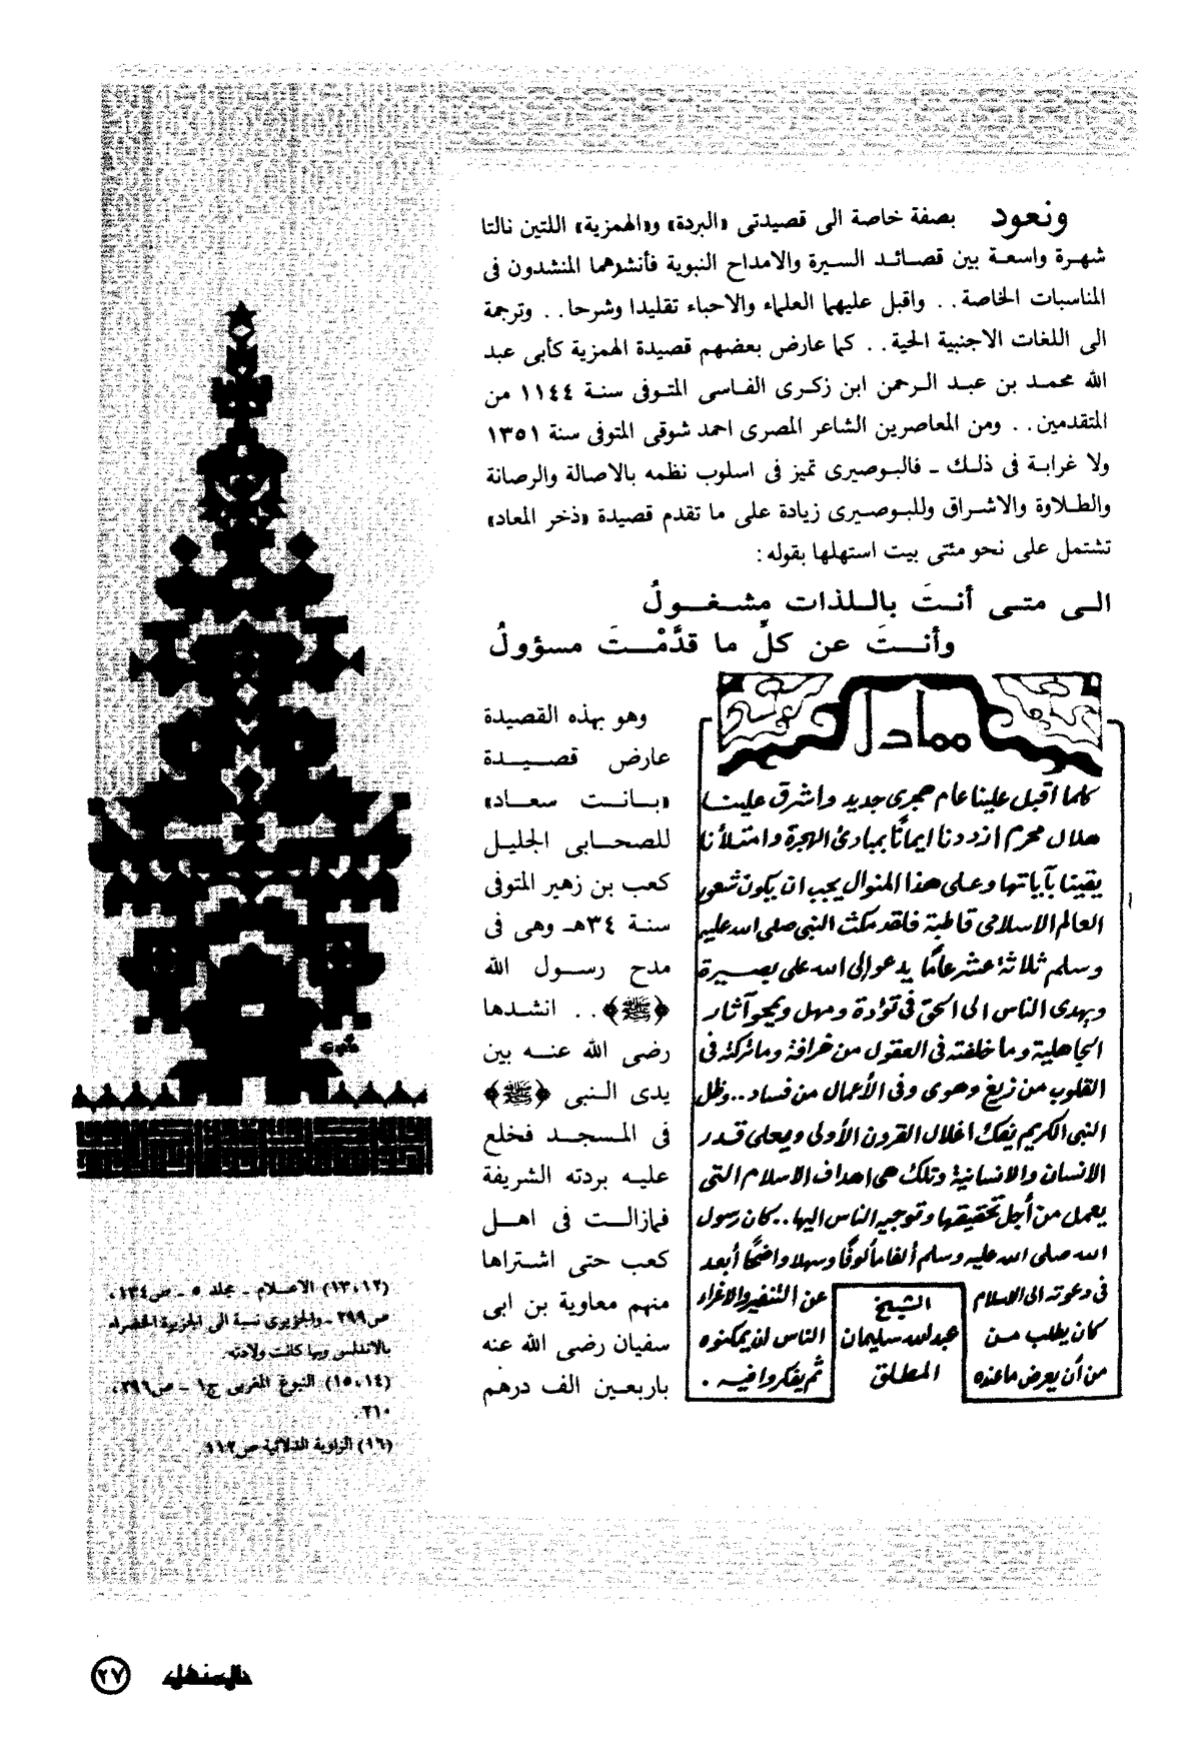 ونعود بصفة خاصة الى قصيدتى «البردة» و«الهمزية» اللتين نالتا
شهرة واسعة بين قصائد السيرة والامداح النبوية فأنشوهما المنشدون فى
المناسبات الخاصة . . واقبل عليهما العلماء والاحباء تقليدا وشرحا . . وترجمة
الى اللغات الاجنبية الحية . . كما عارض بعضهم قصيدة الهمزية كأبى عبد
الله محمد بن عبد الرحمن ابن زكرى الفاسى المتوفى سنة ١١٤٤ من
المتقدمين . . ومن المعاصرين الشاعر المصرى احمد شوقى المتوفى سنة ١٣٥١
ولا غرابة فى ذلك ـ فالبوصيرى تميز فى اسلوب نظمه بالاصالة والرصانة
والطلاوة والاشراق وللبوصيرى زيادة على ما تقدم قصيدة «ذخر المعاد»
تشتمل على نحو مئتى بيت استهلها بقوله :
الى متى أنتَ باللذات مشغولُ
وأنتَ عن كلِّ ما قدَّمْتَ مسؤولُ
وهو بهذه القصيدة
عارض قصيدة
«بانت سعاد»
للصحابى الجليل
كعب بن زهير المتوفى
سنة ٣٤هـ وهى فى
مدح رسول الله
﴿ﷺ﴾ . . انشدها
رضى الله عنه بين
يدى النبى ﴿ﷺ﴾
فى المسجد فخلع
عليه بردته الشريفة
فمازالت فى اهل
كعب حتى اشتراها
منهم معاوية بن ابى
سفيان رضى الله عنه
باربعين الف درهم
كلما اقبل علينا عام هجرى جديد واشرق علينا
هلال محرم ازددنا ايمانًا بمبادئ الهجرة وامتلأنا
يقينا بآياتها وعلى هذا المنوال يجب ان يكون شعور
العالم الاسلامى قاطبة فلقد مكث النبى صلى الله عليه
وسلم ثلاثة عشر عامًا يدعو إلى الله على بصيرة
ويهدى الناس الى الحق فى تؤدة ومهل ويمحو آثار
الجاهلية وما خلفته فى العقول من خرافة وماتركته فى
القلوب من زيغ وهوى وفى الأعمال من فساد . . وظل
النبى الكريم يفك اغلال القرون الأولى ويعلى قدر
الانسان والانسانية وتلك هى اهداف الاسلام التى
يعمل من أجل تحقيقها وتوجيه الناس اليها . . كان رسول
الله صلى الله عليه وسلم ألفا مألوفًا وسهلا واضحًا أبعد
فى دعوته الى الاسلام عن التنفير والاغراء
كان يطلب من الناس ان يمكنوه
من أن يعرض ماعنده ثم يفكروا فيه .
الشيخ
عبدالله سليمان
المطلق
(١٣،١٢) الاعلام ـ مجلد ٥ ـ ص١٣٤،
ص٢٩٩ ـ والجزيرى نسبة الى الجزيرة الخضراء
بالاندلس وبها كانت ولادته.
(١٥،١٤) النبوغ المغربى ج١ ـ ص٢٩٦،
٣١٠.
(١٦) الزاوية الدلائية ص١١٢
المنهل ٢٧